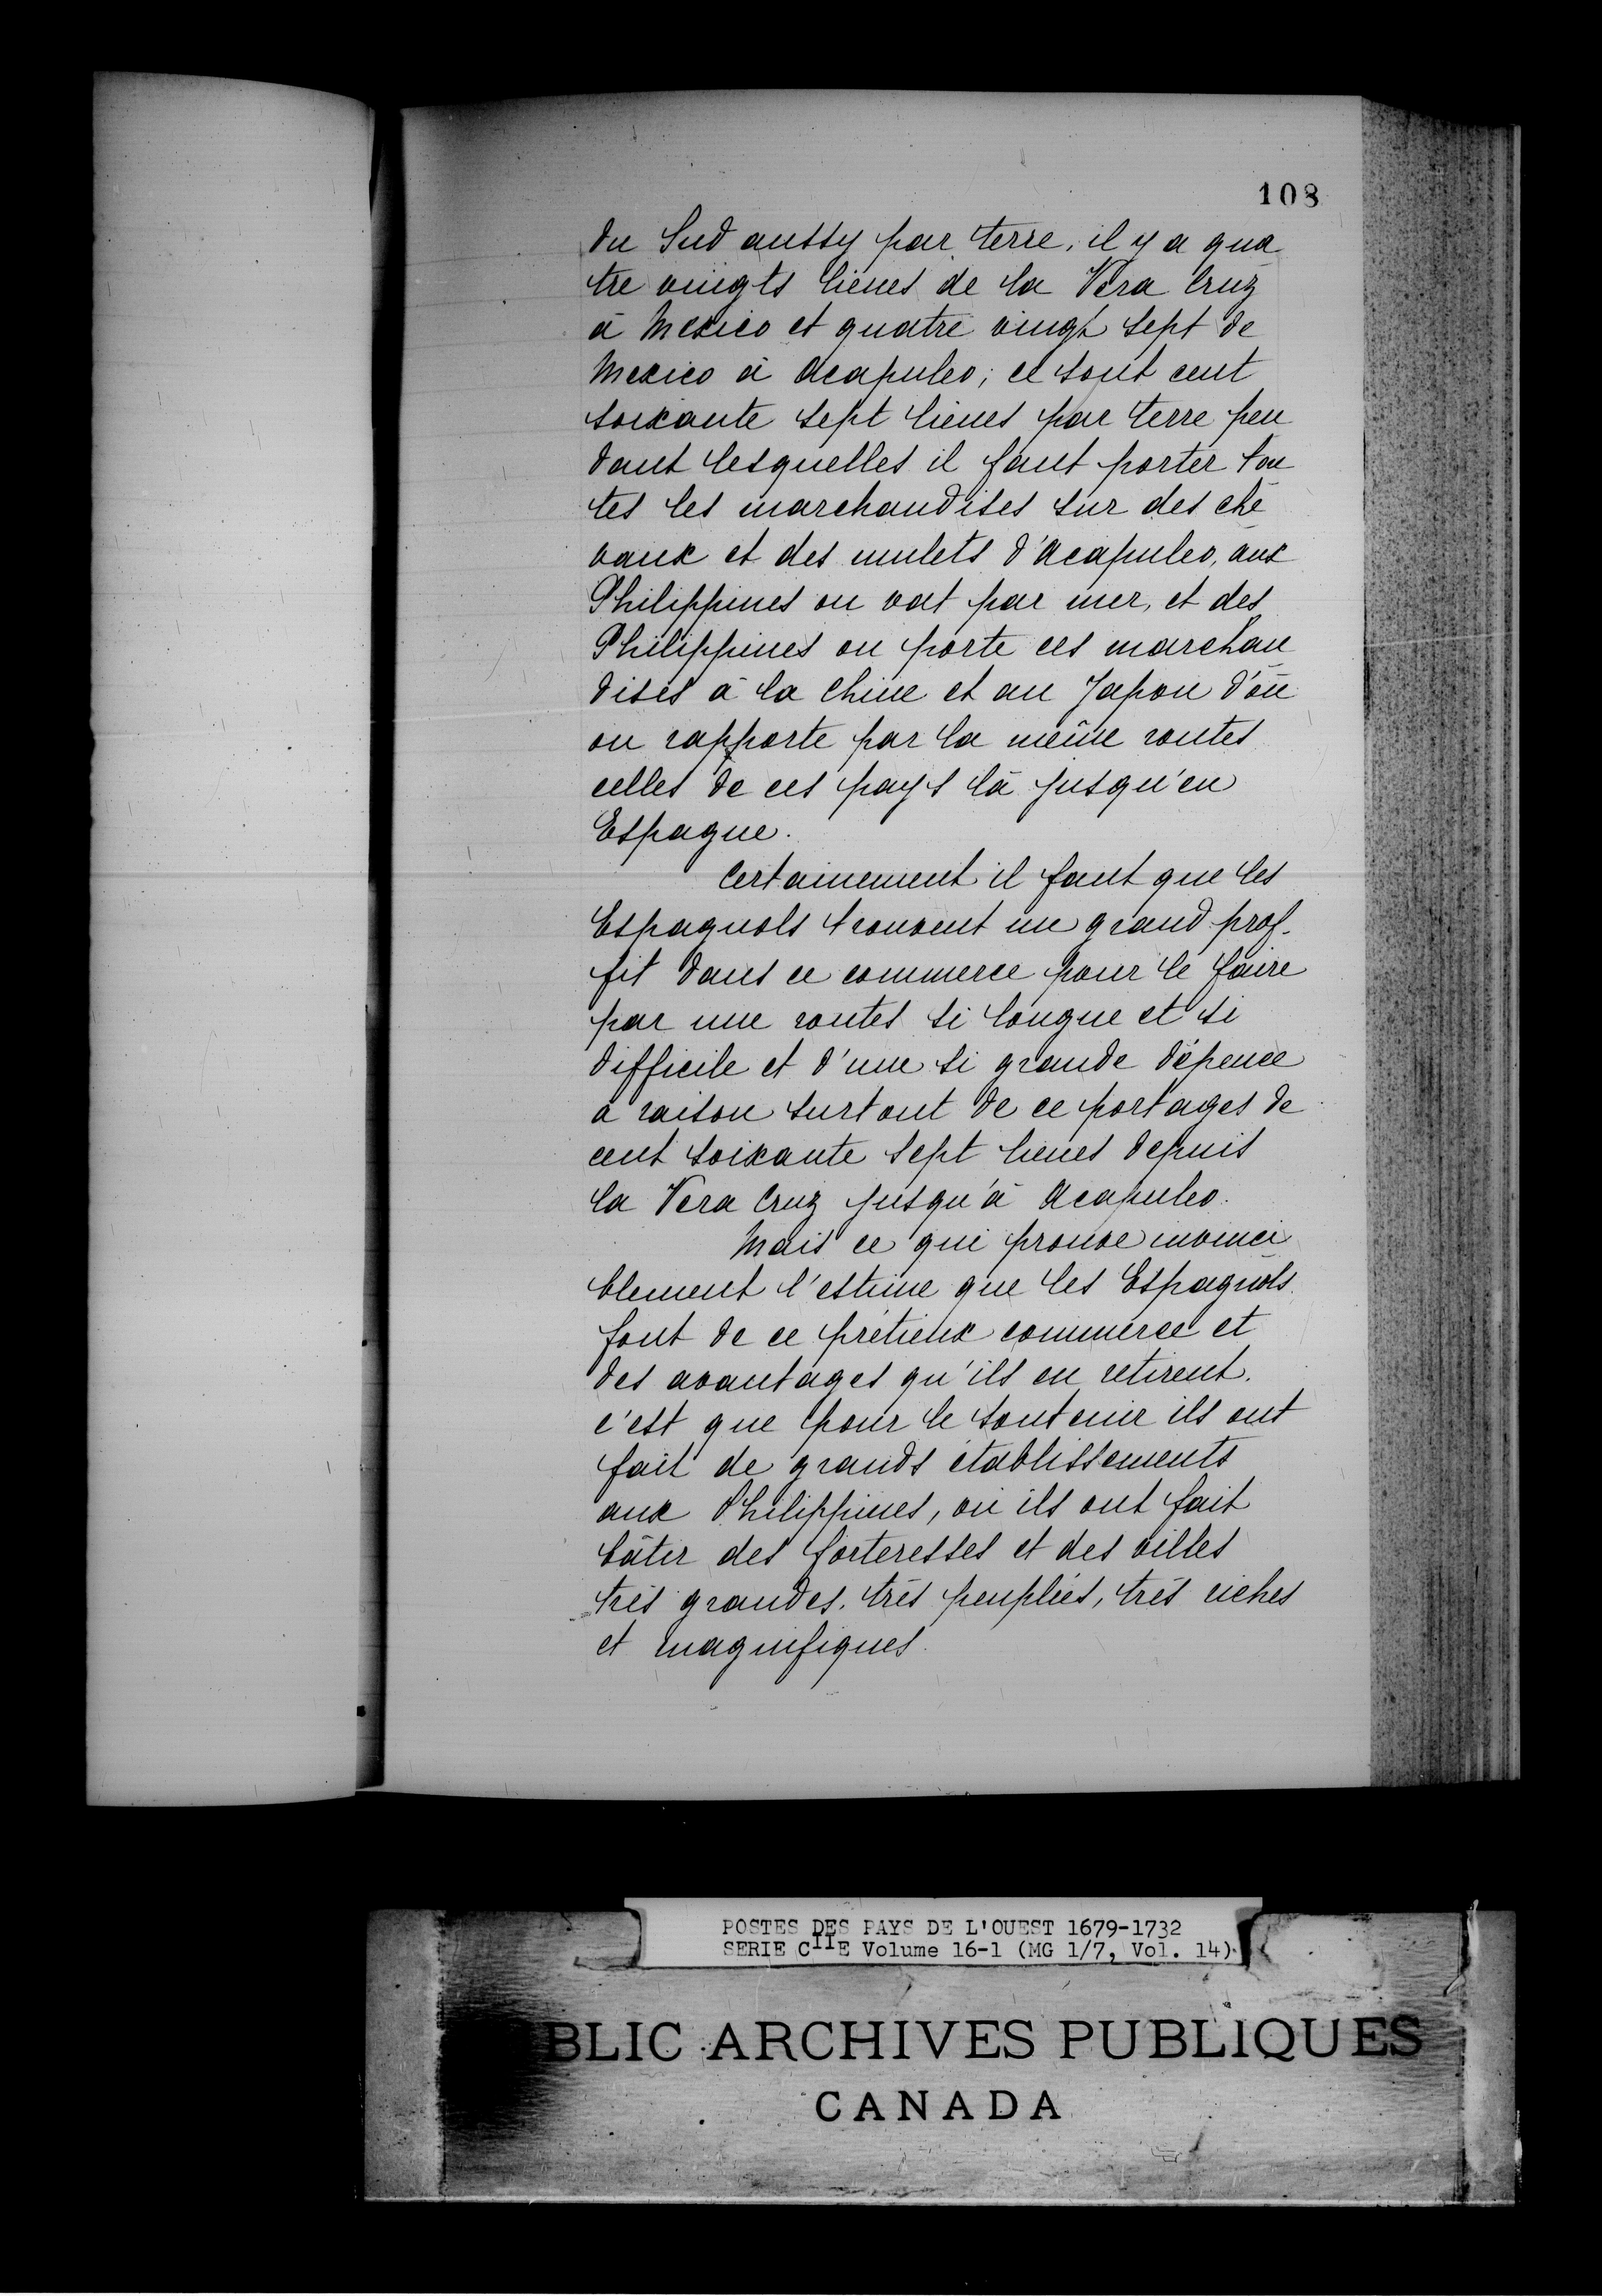 108
du Sud aussy par terre, il y a qua
tre vingts lieues de la Vera Cruz
à Mexico et quatre vingt sept de
Mexico à Acapulco; ce sont cent
soixante sept lieues par terre pen
dant lesquelles il faut porter tou
tes les marchandises sur des che
vaux et des mulets d'Acapulco, aux
Philippines on vat par mer, et des
Philippines on porte ces marchan
dises à la Chine et au Japon d'où
on rapporte par la même routes
celles de ces pays là jusqu'en
Espagne.
Certainement il faut que les
Espagnols trouvent un grand prof-
fit dans ce commerce pour le faire
par une routes si longue et si
difficile et d'une si grande dépence
à raison surtout de ce portages de
cent soixante sept lieues depuis
la Vera Cruz jusqu'à Acapulco.
Mais ce qui prouve invinci
blement l'estime que les Espagnols
font de ce prétieux commerce et
des avantages qu'ils en retirent.
c'est que pour le soutenir ils ont
fait de grands établissements
aux Philippines, où ils ont fait
bâtir des forteresses et des villes
très grandes, très peuplées, très riches
et magnifiques.
POSTES DES PAYS DE L'OUEST 1679-1732
SERIE CIIE Volume 16-1 (MG 1/7, Vol. 14)
BLIC ARCHIVES PUBLIQUES
CANADA